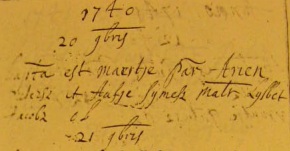 1740
20 9bris
est maertje par Arien
et Aafje symesz matr Lysbet
Jacobs
21 9bris